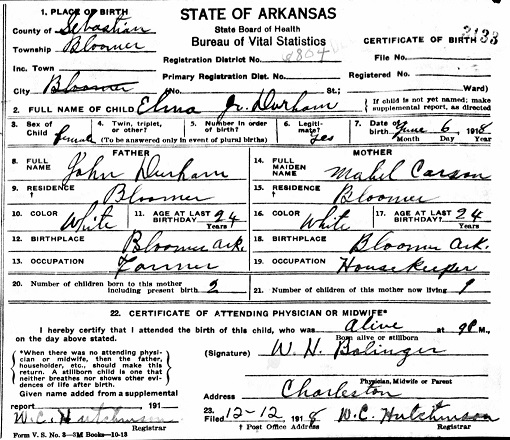 1. PLACE OF BIRTH
STATE OF ARKANSAS
County of Sebastian
State Board of Health
Township Bloomer
Bureau of Vital Statistics
CERTIFICATE OF BIRTH 2133
Registration District No.
File No.
Inc. Town
Primary Registration Dist. No.
Registered No.
City Bloomer (No. St.; Ward)
2. FULL NAME OF CHILD Elma Jr. Durham
If child is not yet named; make supplemental report, as directed
3. Sex of Child female
4. Twin, triplet, or other?
5. Number in order of birth?
(To be answered only in event of plural births)
6. Legitimate? Yes
7. Date of birth June 6, 1918
Month Day Year
FATHER
MOTHER
8. FULL NAME John Durham
14. FULL MAIDEN NAME Mabel Carson
9. RESIDENCE † Bloomer
15. RESIDENCE † Bloomer
10. COLOR White
11. AGE AT LAST BIRTHDAY? 24 Years
16. COLOR White
17. AGE AT LAST BIRTHDAY 24 Years
12. BIRTHPLACE Bloomer Ark.
18. BIRTHPLACE Bloomer Ark.
13. OCCUPATION Farmer
19. OCCUPATION Housekeeper
20. Number of children born to this mother including present birth 2
21. Number of children of this mother now living 1
22. CERTIFICATE OF ATTENDING PHYSICIAN OR MIDWIFE*
I hereby certify that I attended the birth of this child, who was alive at 9 P M.,
on the day above stated.
Born alive or stillborn
*When there was no attending physician or midwife, then the father, householder, etc., should make this return. A stillborn child is one that neither breathes nor shows other evidences of life after birth.
(Signature) W. H. Bolinger
Physician, Midwife or Parent
Given name added from a supplemental
Address Charleston
report 191
W. C. Hutchinson
Registrar
23. Filed 12-12 1918 W. C. Hutchinson
† Post Office Address
Registrar
Form V. S. No. 2—3M Books—10-13